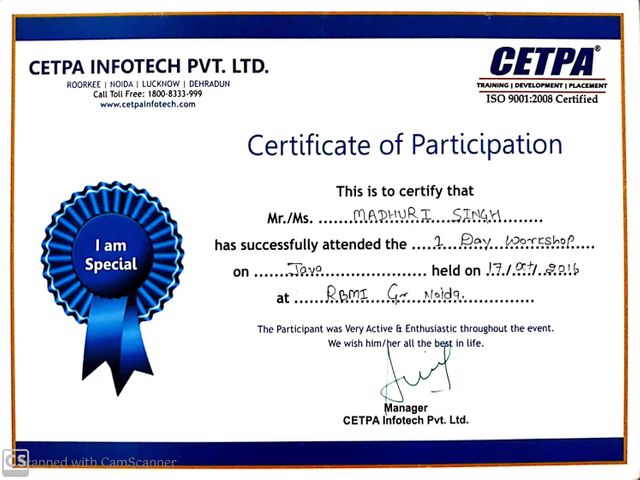 CETPA INFOTECH PVT. LTD.
ROORKEE | NOIDA | LUCKNOW | DEHRADUN
Call Toll Free: 1800-8333-999
www.cetpainfotech.com
CETPA®
TRAINING | DEVELOPMENT | PLACEMENT
ISO 9001:2008 Certified
Certificate of Participation
This is to certify that
Mr./Ms. MADHURI SINGH
has successfully attended the 1 Day Workshop
on Java held on 17/Oct/2016
at RBMI Gr Noida.
I am
Special
The Participant was Very Active & Enthusiastic throughout the event.
We wish him/her all the best in life.
Manager
CETPA Infotech Pvt. Ltd.
CS Scanned with CamScanner